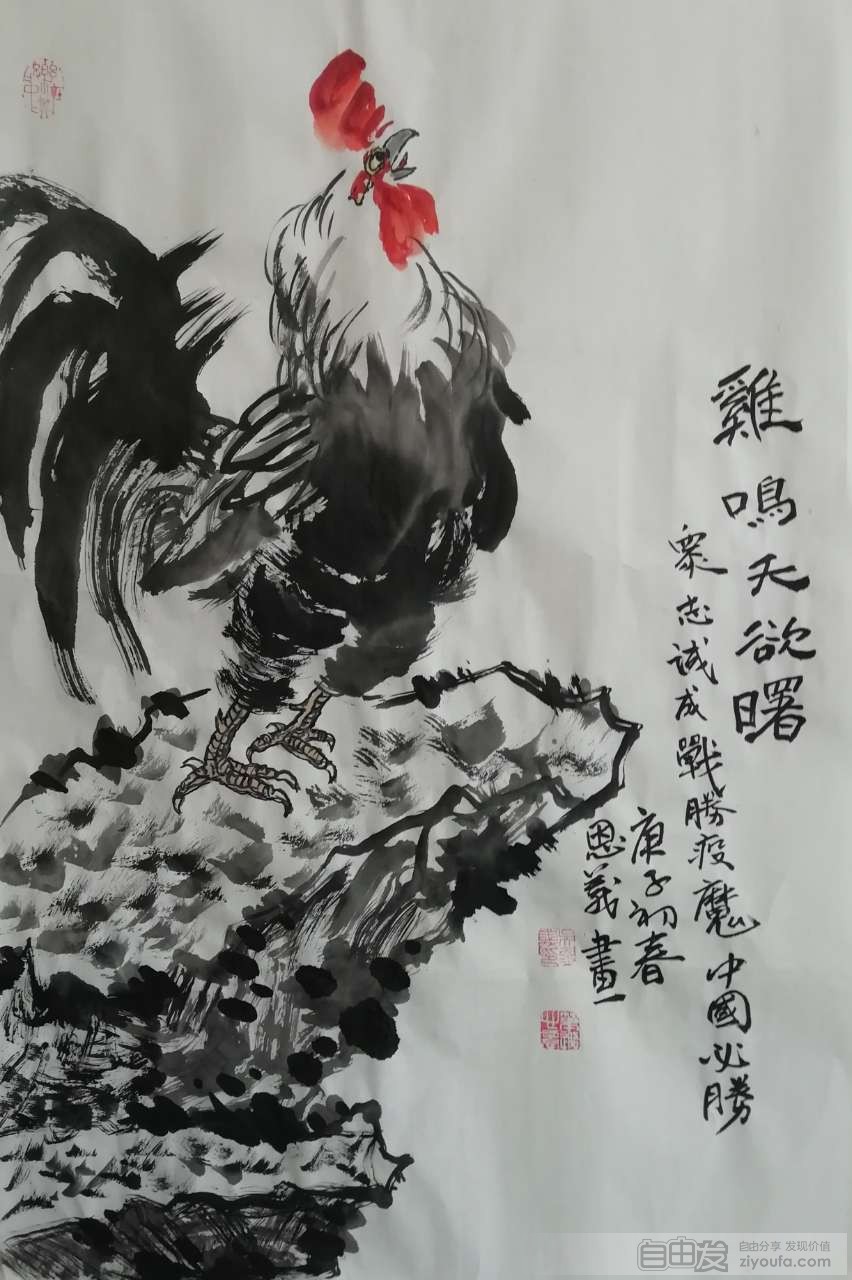 雞鳴天欲曙
眾志诚成戰勝疫魔中國必勝
庚子初春
恩義畫
自由发
自由分享 发现价值
ziyoufa.com